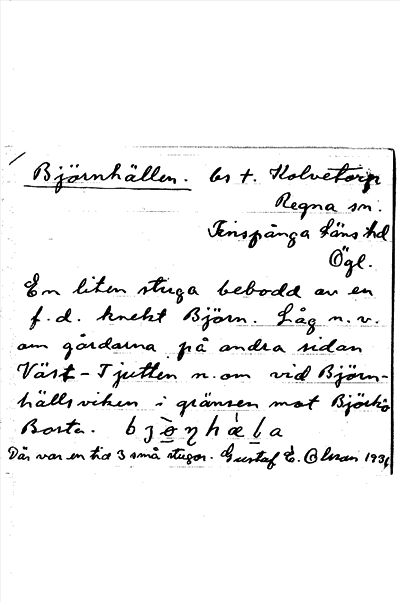 Björnhällen. bs t. Kolvetorp
Regna sn.
Finspånga läns hd
Ögl.
En liten stuga bebodd av en
f.d. knekt Björn. Låg n.v.
om gårdarna på andra sidan
Väst-Tjutten n. om vid Björn-
hällsviken i gränsen mot Björkö
Borta.
Där var en två 3 små stugor. Gustaf E. Olsson